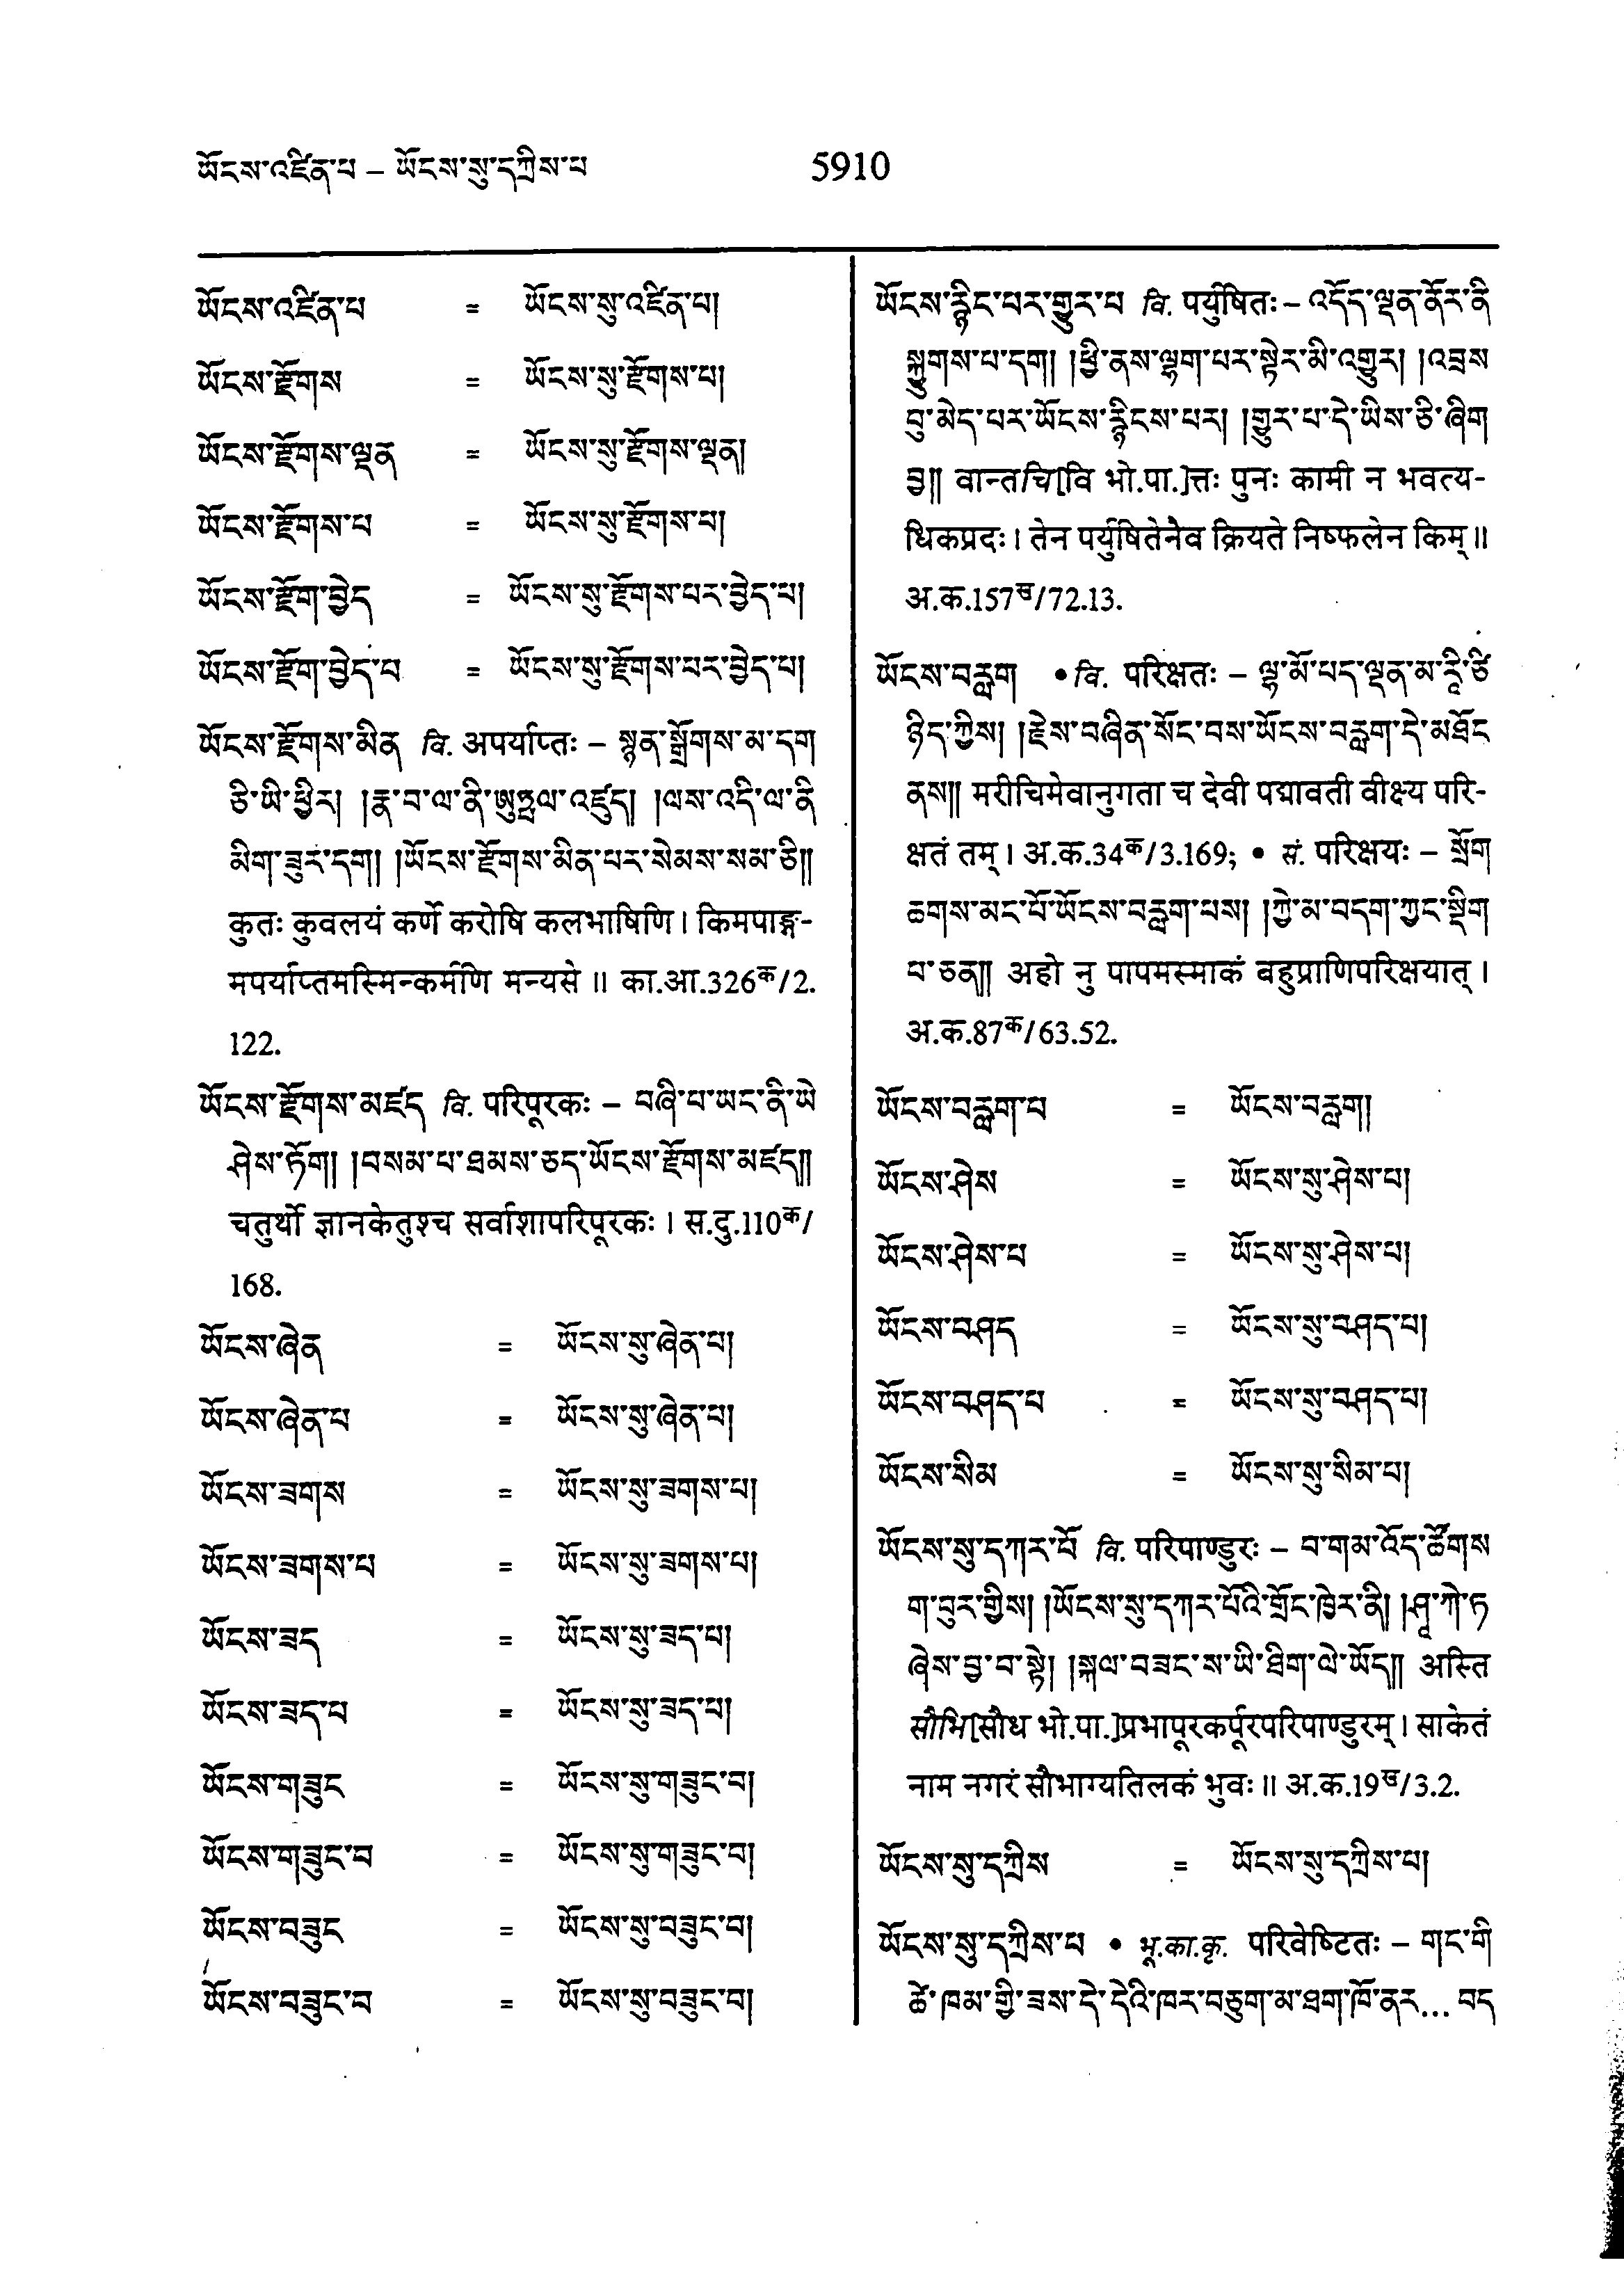 ཡོངས་འཛིན་པ – ཡོངས་སུ་དཀྲིས་པ 5910
ཡོངས་འཛིན་པ = ཡོངས་སུ་འཛིན་པ།
ཡོངས་རྫོགས = ཡོངས་སུ་རྫོགས་པ།
ཡོངས་རྫོགས་ལྡན = ཡོངས་སུ་རྫོགས་ལྡན།
ཡོངས་རྫོགས་པ = ཡོངས་སུ་རྫོགས་པ།
ཡོངས་རྫོག་བྱེད = ཡོངས་སུ་རྫོགས་པར་བྱེད་པ།
ཡོངས་རྫོག་བྱེད་པ = ཡོངས་སུ་རྫོགས་པར་བྱེད་པ།
ཡོངས་རྫོགས་མིན वि. अपर्याप्तः – སྙན་སྒྲོགས་མ་དག
ཅི་ཡི་ཕྱིར། །རྣ་བ་ལ་ནི་ཨུཏྤལ་འཛུད། །ལས་འདི་ལ་ནི
མིག་ཟུར་དག། །ཡོངས་རྫོགས་མིན་པར་སེམས་སམ་ཅི༎
कुतः कुवलयं कर्णे करोषि कलभाषिणि। किमपाङ्ग-
मपर्याप्तमस्मिन्कर्मणि मन्यसे॥ का.आ.326क/2.
122.
ཡོངས་རྫོགས་མཛད वि. परिपूरकः – བཞི་པ་ཡང་ནི་ཡེ
ཤེས་ཏོག། །བསམ་པ་ཐམས་ཅད་ཡོངས་རྫོགས་མཛད༎
चतुर्थो ज्ञानकेतुश्च सर्वाशापरिपूरकः। स.दु.110क/
168.
ཡོངས་ཞེན = ཡོངས་སུ་ཞེན་པ།
ཡོངས་ཞེན་པ = ཡོངས་སུ་ཞེན་པ།
ཡོངས་ཟགས = ཡོངས་སུ་ཟགས་པ།
ཡོངས་ཟགས་པ = ཡོངས་སུ་ཟགས་པ།
ཡོངས་ཟད = ཡོངས་སུ་ཟད་པ།
ཡོངས་ཟད་པ = ཡོངས་སུ་ཟད་པ།
ཡོངས་གཟུང = ཡོངས་སུ་གཟུང་བ།
ཡོངས་གཟུང་བ = ཡོངས་སུ་གཟུང་བ།
ཡོངས་བཟུང = ཡོངས་སུ་བཟུང་བ།
ཡོངས་བཟུང་བ = ཡོངས་སུ་བཟུང་བ།
ཡོངས་རྙིང་པར་གྱུར་པ वि. पर्युषितः – འདོད་ལྡན་ནོར་ནི
སྐྱུགས་པ་དག། །ཕྱི་ནས་ལྷག་པར་སྟེར་མི་འགྱུར། །འབྲས
བུ་མེད་པར་ཡོངས་རྙིངས་པར། །གྱུར་པ་དེ་ཡིས་ཅི་ཞིག
བྱ༎ वान्तचि[वि भो.पा.]त्तः पुनः कामी न भवत्य-
धिकप्रदः। तेन पर्युषितेनैव क्रियते निष्फलेन किम्॥
अ.क.157ख/72.13.
ཡོངས་བརླག • वि. परिक्षतः – ལྷ་མོ་པད་ལྡན་མ་རཱི་ཙི
ཉིད་ཀྱིས། །རྗེས་བཞིན་སོང་བས་ཡོངས་བརླག་དེ་མཐོང
ནས༎ मरीचिमेवानुगता च देवी पद्मावती वीक्ष्य परि-
क्षतं तम्। अ.क.34क/3.169; • सं. परिक्षयः – སྲོག
ཆགས་མང་པོ་ཡོངས་བརླག་པས། །ཀྱེ་མ་བདག་ཀྱང་སྡིག
པ་ཅན༎ अहो नु पापमस्माकं बहुप्राणिपरिक्षयात्।
अ.क.87क/63.52.
ཡོངས་བརླག་པ = ཡོངས་བརླག།
ཡོངས་ཤེས = ཡོངས་སུ་ཤེས་པ།
ཡོངས་ཤེས་པ = ཡོངས་སུ་ཤེས་པ།
ཡོངས་བཤད = ཡོངས་སུ་བཤད་པ།
ཡོངས་བཤད་པ = ཡོངས་སུ་བཤད་པ།
ཡོངས་སིམ = ཡོངས་སུ་སིམ་པ།
ཡོངས་སུ་དཀར་པོ वि. परिपाण्डुरः – བ་གམ་འོད་ཚོགས
ག་བུར་གྱིས། །ཡོངས་སུ་དཀར་པོའི་གྲོང་ཁྱེར་ནི། །ཤཱ་ཀེ་ཏ
ཞེས་བྱ་བ་སྟེ། །སྐལ་བཟང་ས་ཡི་ཐིག་ལེ་ཡོད༎ अस्ति
सौभि[सौध भो.पा.]प्रभापूरकर्पूरपरिपाण्डुरम्। साकेतं
नाम नगरं सौभाग्यतिलकं भुवः॥ अ.क.19ख/3.2.
ཡོངས་སུ་དཀྲིས = ཡོངས་སུ་དཀྲིས་པ།
ཡོངས་སུ་དཀྲིས་པ • भू.का.कृ. परिवेष्टितः – གང་གི
ཚེ་ཁམ་གྱི་ཟས་དེ་དེའི་ཁར་བཅུག་མ་ཐག་ཁོ་ནར... བད